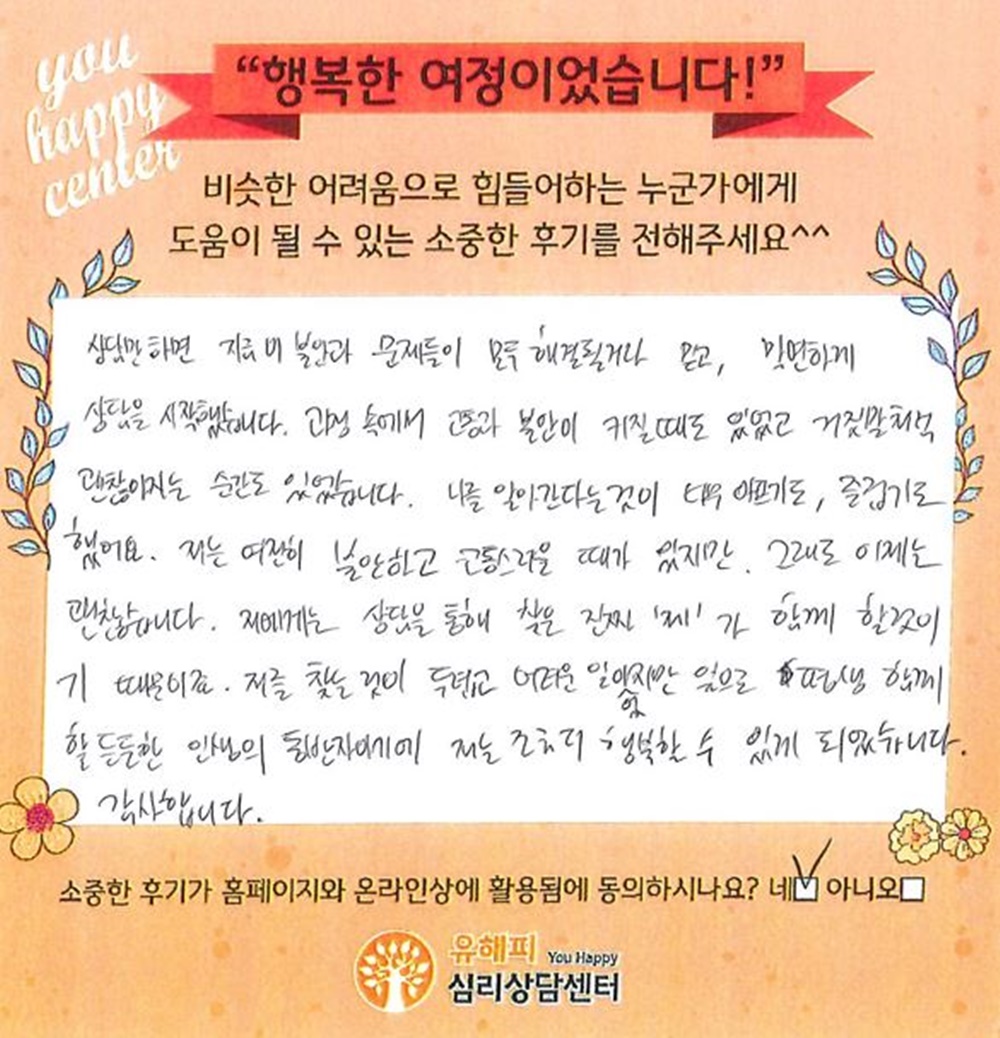 you
happy
center
“행복한 여정이었습니다!”
비슷한 어려움으로 힘들어하는 누군가에게
도움이 될 수 있는 소중한 후기를 전해주세요^^
상담만하면 지금의 불안과 문제들이 모두 해결될거라 믿고,
상담을 시작했습니다. 과정 속에서 고통과 불안이 커질때도 있었고 거짓말처럼
괜찮아지는 순간도 있었습니다. 나를 알아간다는것이 매우 아프기도, 즐겁기도
했어요. 저는 여전히 불안하고 고통스러울 때가 있지만. 그래도 이제는
괜찮습니다. 저에게는 상담을 통해 찾은 진짜 '제'가 함께 할것이
기 때문이죠. 저를 찾는 것이 두렵고 어려운 일이었지만 앞으로 평생 함께
할 든든한 인생의 동반자이기에 저는 조금더 행복할 수 있게 되었습니다.
감사합니다.
소중한 후기가 홈페이지와 온라인상에 활용됨에 동의하시나요? 네☑ 아니오☐
유해피 You Happy
심리상담센터